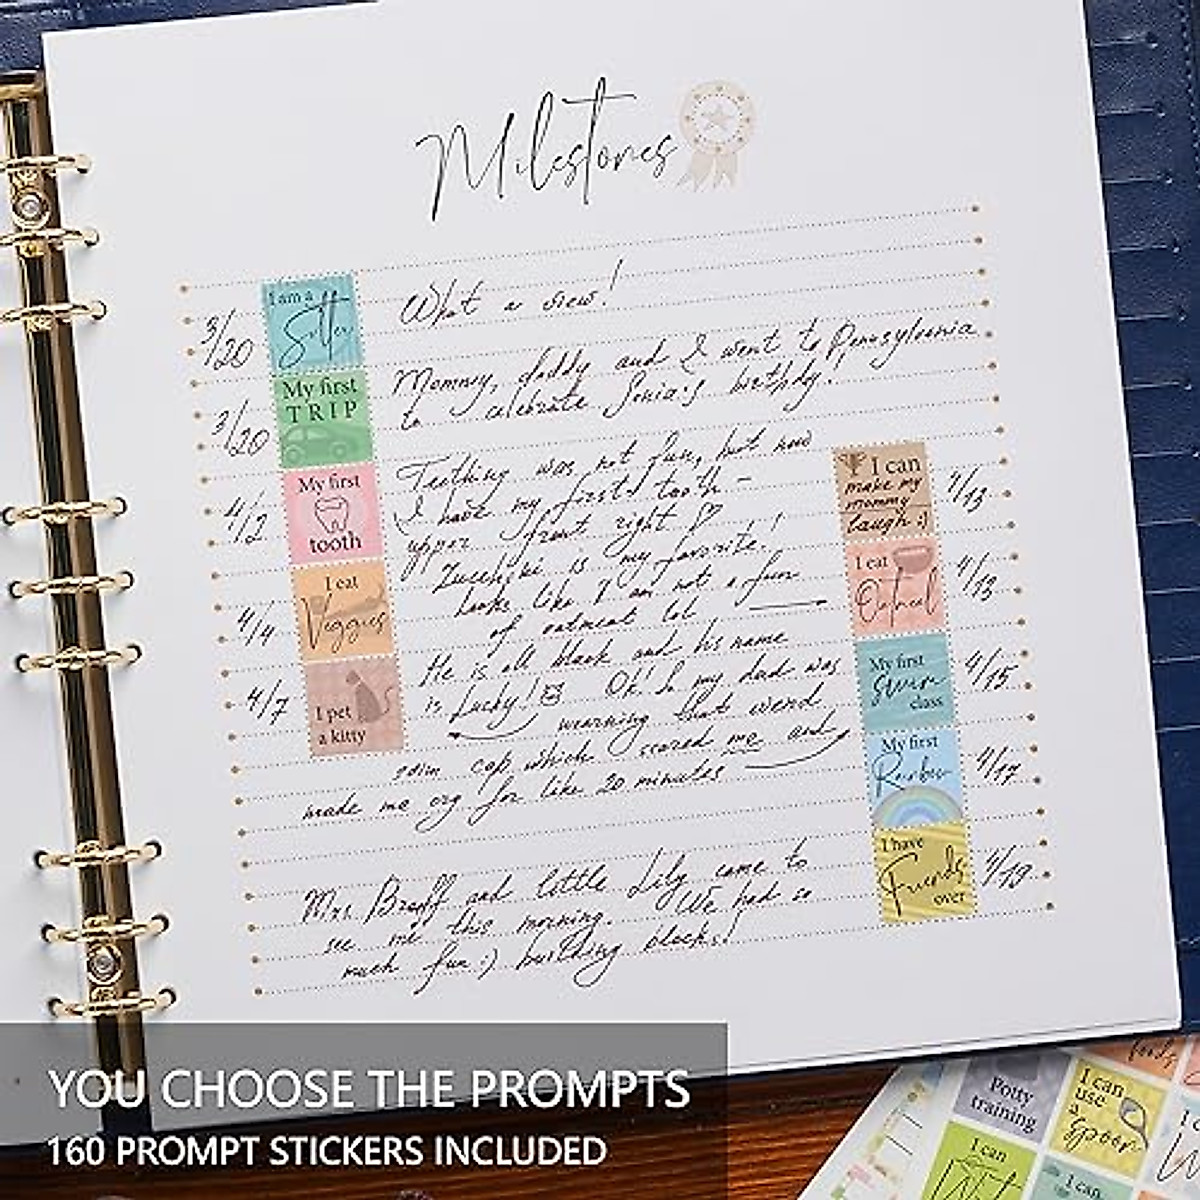 Milestones
3/20
I am a
Sitter
What a view!
3/20
My first
TRIP
Mommy, daddy and I went to Pennsylvania
to celebrate Sonia's birthdy.
4/2
My first
tooth
Teething was not fun, but now
I have my first tooth -
upper front right
4/4
I eat
Veggies
Zucchini is my favorite!
looks like I am not a fun
of oatmeal lol
4/7
I pet
a kitty
He is all black and his name
is Lucky!
I can
make my
mommy
laugh :)
4/13
I eat
Oatmeal
4/13
My first
swim
class
4/15
Oh! So my dad was
wearning that weird
swim cap which scared me and
made me cry for like 20 minutes
My first
Rainbow
4/17
I have
Friends
over
4/19
Mrs. Braff and little Lily came to
see me this morning. We had so
much fun :) building blocks!
YOU CHOOSE THE PROMPTS
160 PROMPT STICKERS INCLUDED
Potty
training
I can
use
a
Spoon
I can
I can